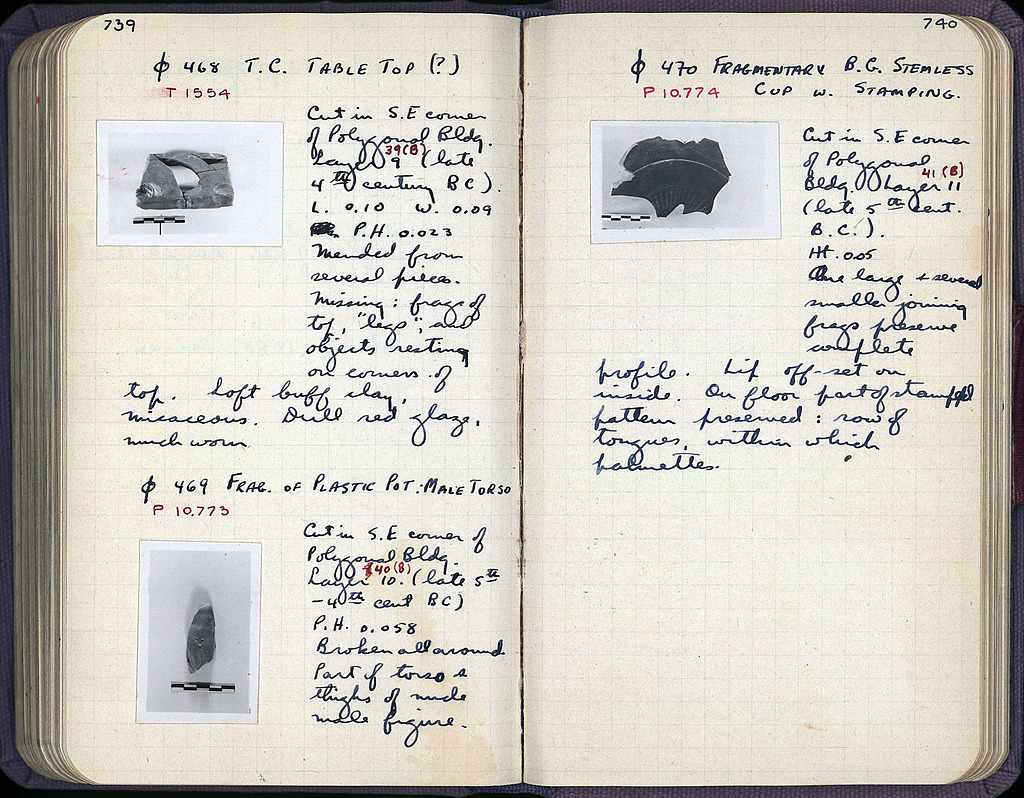 739
ϕ 468 T.C. TABLE TOP (?)
T 1554
Cut in S.E corner
of Polygonal Bldg.
39(B)
Layer 9 (late
4th century BC).
L. 0.10 W. 0.09
P.H. 0.023
Mended from
several pieces.
Missing: frags of
top, "legs", and
objects resting
on corners of
top. Soft buff clay,
micaceous. Dull red glaze,
much worn
ϕ 469 FRAG. OF PLASTIC POT: MALE TORSO
P 10,773
Cut in S.E corner of
Polygonal Bldg.
40(B)
Layer 10. (late 5th
-4th cent BC)
P.H. 0.058
Broken all around
Part of torso &
thighs of nude
male figure.
740
ϕ 470 FRAGMENTARY B.G. STEMLESS
P 10,774 CUP W. STAMPING.
Cut in S.E corner
of Polygonal
41(B)
Bldg. Layer 11
(late 5th cent.
B.C.).
Ht. 0.05
One large & several
smaller joining
frags preserve
complete
profile. Lip off-set on
inside. On floor part of stamped
pattern preserved: row of
tongues, within which
palmettes.